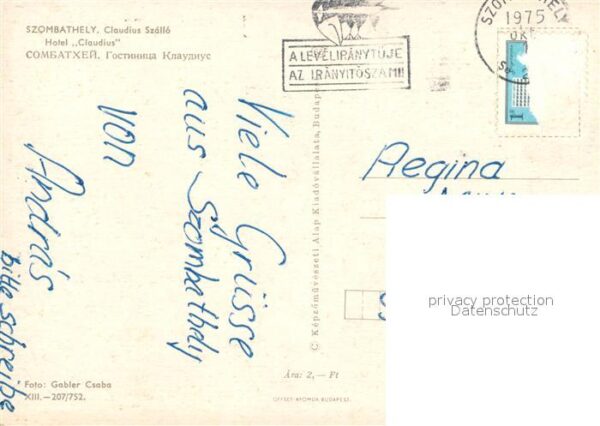 SZOMBATHELY, Claudius Szálló
Hotel „Claudius"
СОМБАТХЕЙ, Гостиница Клаудиус
A LEVÉL IRÁNYTŰJE
AZ IRÁNYÍTÓSZÁM!!
1975
Viele Grüsse
aus Szombathely
von
András
bitte schreibe
© Képzőművészeti Alap Kiadóvállalata, Budapest
Regina
privacy protection
Datenschutz
Ára: 2,— Ft
Foto: Gabler Csaba
XIII.—207/752.
OFFSET-NYOMDA BUDAPEST